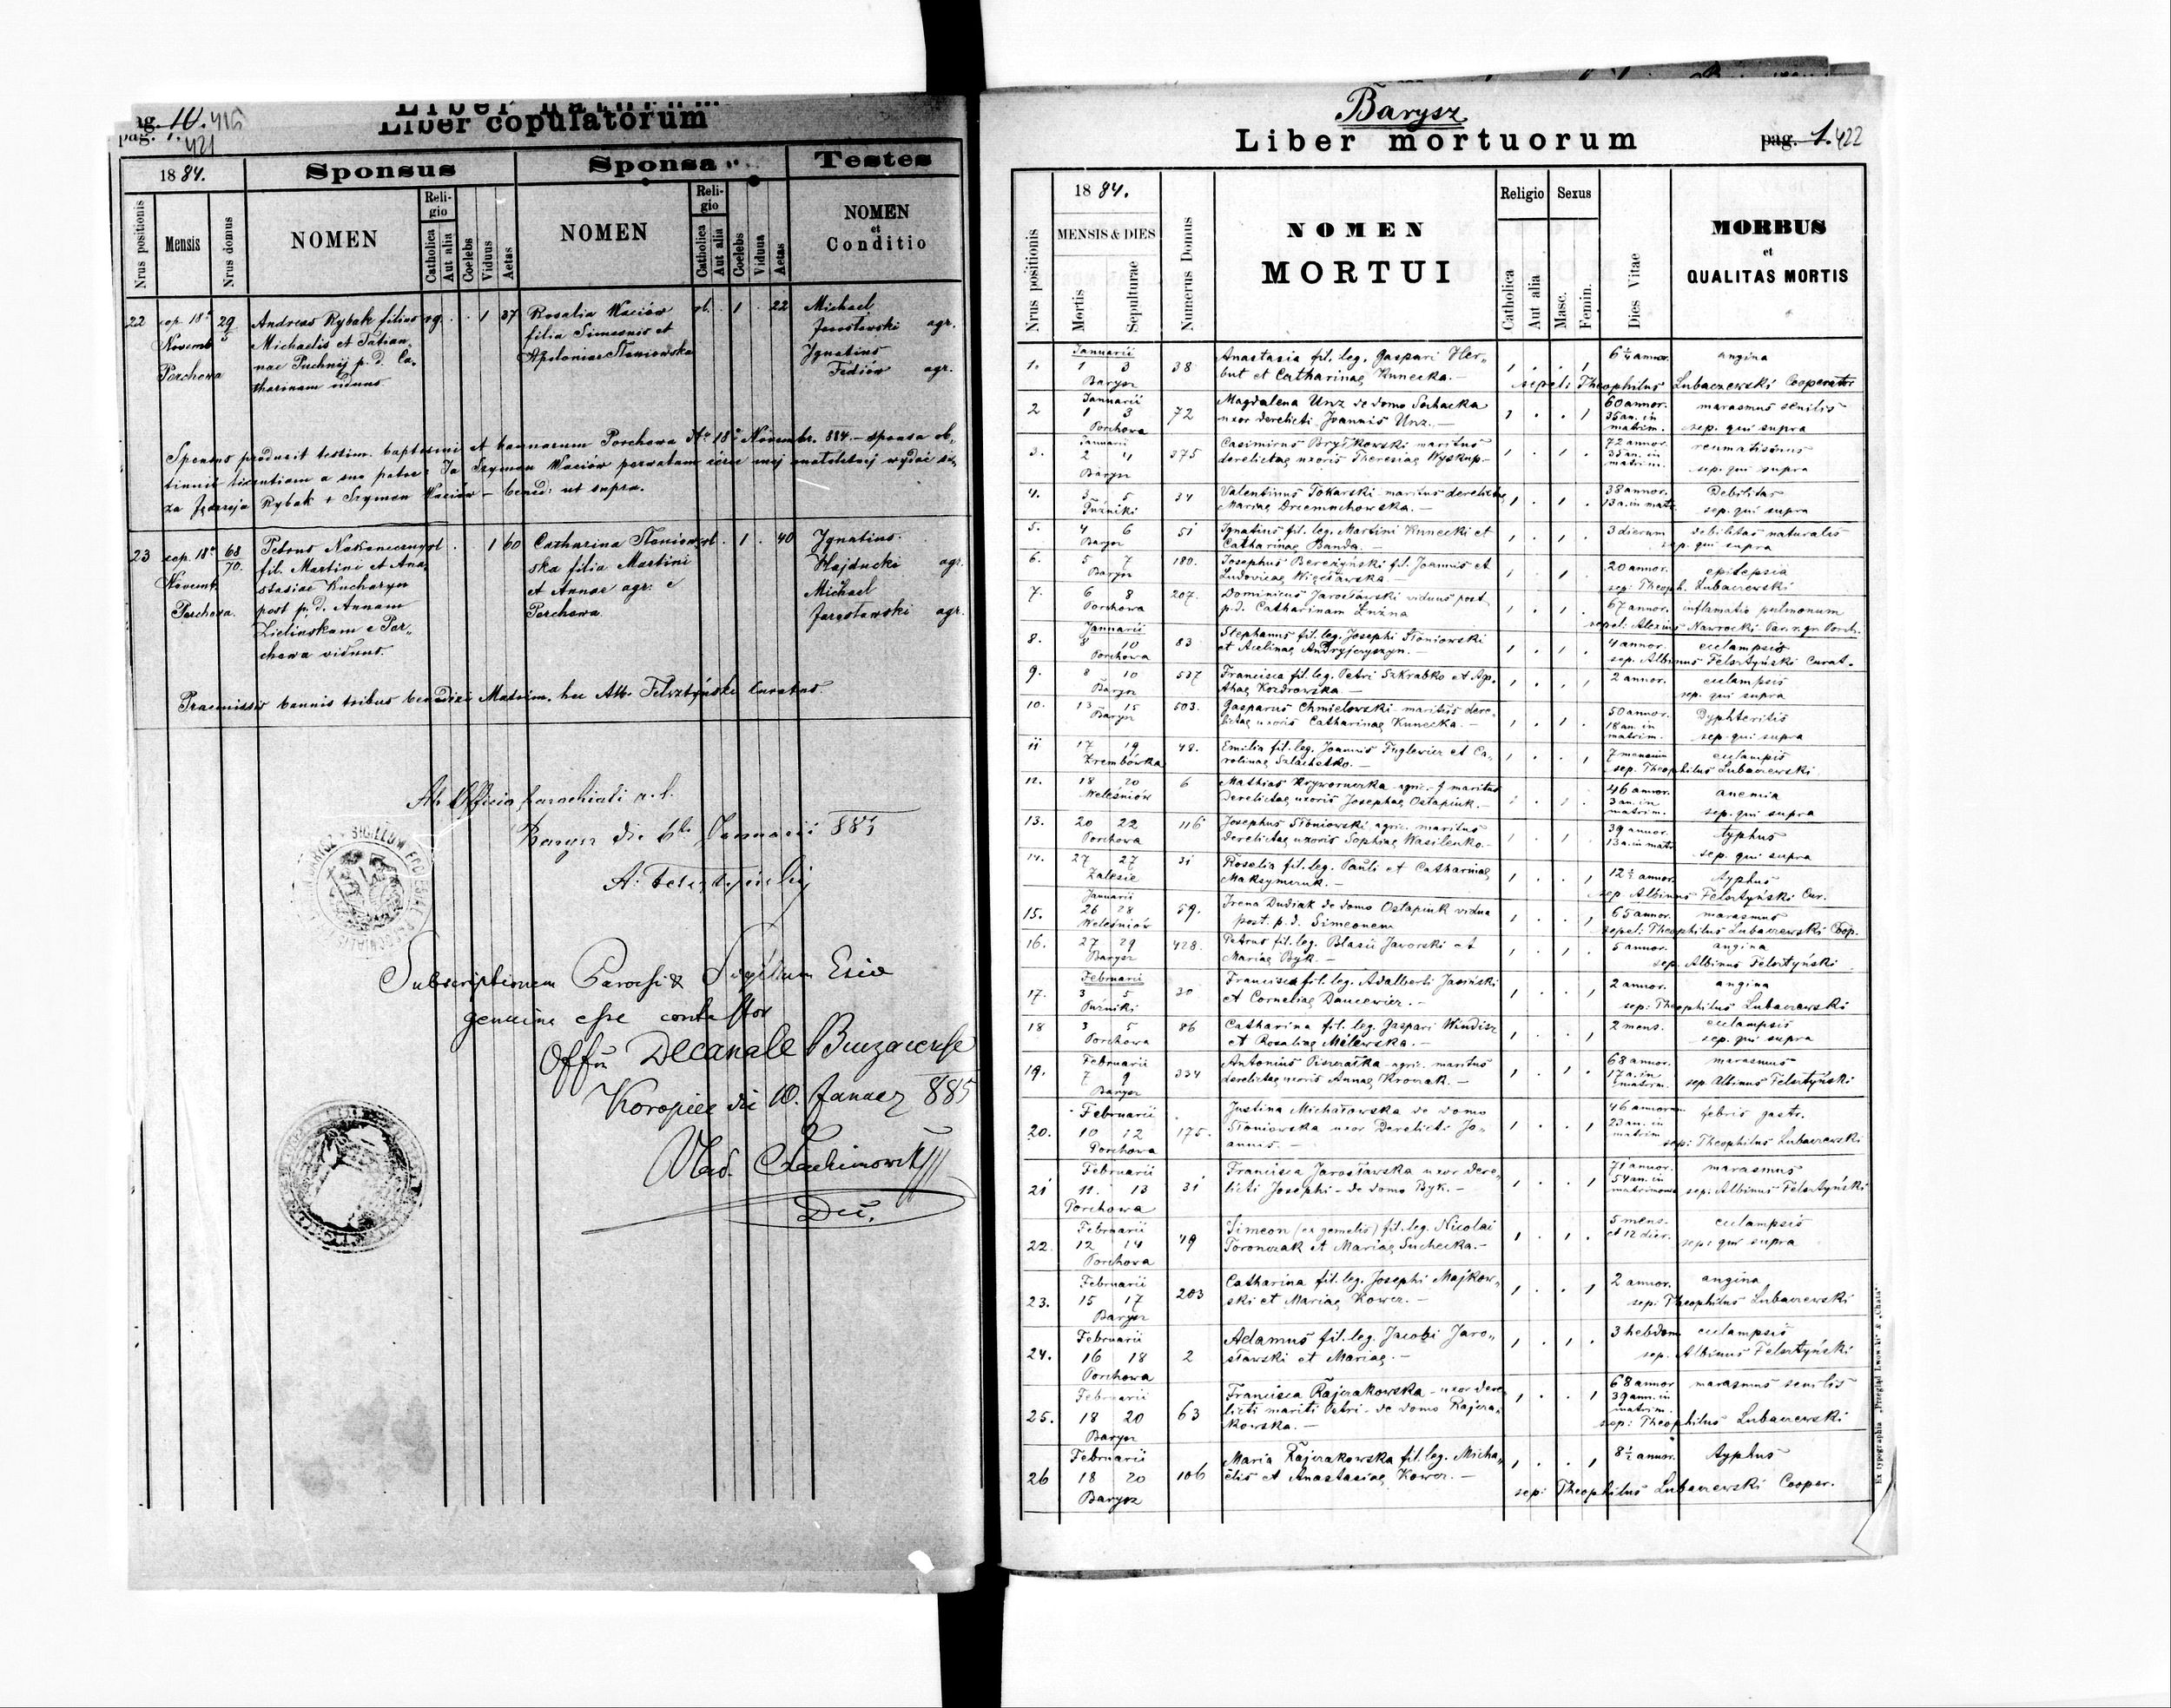 pag. 10. 416
Liber copulatorum
pag. 1.
421
1884.
Sponsus
Sponsa
Testes
Nrus positionis
Mensis
Nrus domus
NOMEN
Religio
Catholica
Aut alia
Coelebs
Viduus
Aetas
NOMEN
Religio
Catholica
Aut alia
Coelebs
Vidua
Aetas
NOMEN
et
Conditio
22 cop. 18a 29 Andreas Rybak filius rg. . . 1 37 Rosalia Waciów rl. . 1 . 22 Michael
Novemb 5 Michaelis et Tatian„ filia Simeonis et Jarosławski agr.
Porchowa nae Puchnij p. d. Ca„ Apoloniae Słoniowska Ignatius
tharinam viduus Fediów agr.
Sponsus produxit testim. baptismi et bannorum Porchowa 18a Novembr. 884. – sponsa ob„
tinuit licentiam a suo patre: Ja Szymon Waciów pozwalam córce mej małoletniej wydać się
za Jędrzeja Rybak + Szymon Waciów – bened: ut supra.
23 cop. 18a 68 Petrus Nakoneczny rl . . 1 60 Catharina Słoniow„ rl . 1 . 40 Ignatius
Novemb. 70. fil. Martini et Ana„ ska filia Martini Hajducki agr.
Porchowa. stasiae Kucharyn et Annae agr. e Michael
post p. d. Annam Porchowa Jarosławski agr.
Zielinskam e Por„
chowa viduus.
Praemissis bannis tribus benedixi Matrim. hoc Alb. Felsztyński Curatus
Ab Officio parochiali r. l.
Barysz die 6ta Januarii 885
A: Felsztyński
Subscriptionem Parochi & Sigillum
genuina esse contestor
Offm Decanale Buczacense
Koropiec die 10. Januar 885
Vlad.
Dec.
Barysz
Liber mortuorum
pag. 1. 422
1884.
MENSIS & DIES
Nrus positionis
Mortis
Sepulturae
Numerus Domus
NOMEN
MORTUI
Religio
Catholica
Aut alia
Sexus
Masc.
Femin.
Dies Vitae
MORBUS
et
QUALITAS MORTIS
Januarii
1. 1 3 38 Anastasia fil. leg. Gaspari Her„ 6 ¼ annor. angina
Barysz but et Catharinae Kunecka. – sepeli: Theophilus Lubaczewski Cooperator
Januarii
2 1 3 72 Magdalena Unz de domo Sochacka 60 annor. marasmus senilis
Porchowa uxor derelicti Joannis Unz. – 35 an. in matrim. sep. qui supra
Januarii
3. 2 4 375 Casimirus Bryłkowski maritus 72 annor. reumatismus
Barysz derelictae uxoris Theresiae Wyskup – 35 an. in matrim. sep. qui supra
4. 3 5 34 Valentinus Tokarski maritus derelictae 38 annor. Debilitas
Puźniki Mariae Drzemuchowska. – 13 a. in matr. sep. qui supra
5. 4 6 51 Ignatius fil. leg. Martini Kunecki et 3 dierum debilitas naturalis
Barysz Catharinae Banda. – sep. qui supra
6. 5 7 180. Josephus Bereżyński fil. Joannis et 20 annor. epilepsia
Barysz Ludovicae Więcławska. – sep: Theoph. Lubaczewski
7. 6 8 207. Dominicus Jarosławski viduus post 67 annor. inflamatio pulmonum
Porchowa p. d. Catharinam Luźna sepel: Alexius Nawrocki Par. r. gr. Porch.
Januarii
8. 8 10 83 Stephanus fil. leg. Josephi Słoniowski 4 annor. eclampsis
Porchowa et Acelinae Andryjczyszyn. – sep. Albinus Felsztyński Curat.
9. 8 10 537 Francisca fil. leg. Petri Szkrabko et Aga„ 2 annor. eclampsis
Barysz thae Kozdrowska. – sep. qui supra
10. 13 15 503. Gasparus Chmielowski maritus dere„ 50 annor. Dyphteritis
Barysz lictae uxoris Catharinae Kunecka. – 18 an. in matrim. sep. qui supra
11 17 19 48. Emilia fil. leg. Joannis Fuglewicz et Ca„ 7 mensium eclampsis
Zrembówka rolinae Szlachetko. – sep. Theophilus Lubaczewski
12. 18 20 6 Mathias Krywonerka agric. maritus 46 annor. anemia
Weleśniów derelictae uxoris Josephae Ostapiuk. – 3 an. in matrim. sep. qui supra
13. 20 22 116 Josephus Słoniowski agric. maritus 39 annor. typhus
Porchowa derelictae uxoris Sophiae Wasilenko. – 13 a. in matr. sep. qui supra
14. 27 27 31 Rosalia fil. leg. Pauli et Catharinae 12 ½ annor. typhus
Zalesie Maksymczuk. – sep Albinus Felsztyński Cur.
Januarii
15. 26 28 59. Irena Dudiak de domo Ostapiuk vidua 65 annor. marasmus
Weleśniów post. p. d. Simeonem sepel: Theophilus Lubaczewski Coop.
16. 27 29 428. Petrus fil. leg. Blasii Jaworski et 5 annor. angina
Barysz Mariae Byk. – sep. Albinus Felsztyński
Februarii
17. 3 5 30 Francisca fil. leg. Adalberti Jasiński 2 annor. angina
Puźniki et Corneliae Dancewicz. – sep: Theophilus Lubaczewski
18 3 5 86 Catharina fil. leg. Gaspari Windisz 2 mens. eclampsis
Porchowa et Rosaliae Milewska. – sep. qui supra
Februarii
19. 7 9 334 Antonius Piszczałka agric. maritus 68 annor. marasmus
Barysz derelictae uxoris Annae Krowak. – 17 a. in matrim. sep Albinus Felsztyński
Februarii
20. 10 12 175. Justina Michałowska de domo 46 annorum febris gastr.
Porchowa Słoniowska uxor Derelicti Jo„ 23 an. in matrim sep: Theophilus Lubaczewski
annis. –
Februarii
21 11. 13 31 Francisca Jarosławska uxor dere„ 71 annor. marasmus
Porchowa licti Josephi – de domo Byk. – 54 an. in matrimonio sep: Albinus Felsztyński
Februarii
22. 12 14 49 Simeon (ex gemelis) fil. leg. Nicolai 5 mens. eclampsis
Porchowa Toronczak et Mariae Suchecka. – et 12 dier. sep: qui supra
Februarii
23. 15 17 203 Catharina fil. leg. Josephi Majkow„ 2 annor. angina
Barysz ski et Mariae Kower. – sep: Theophilus Lubaczewski
Februarii
24. 16 18 2 Adamus fil. leg. Jacobi Jaro„ 3 hebdom eclampsis
Porchowa sławski et Mariae. – sep. Albinus Felsztyński
Februarii
25. 18 20 63 Francisca Rajczakowska – uxor dere„ 68 annor marasmus senilis
Barysz licti mariti Petri – de domo Rajcza„ 39 ann. in matrim.
kowska. – sep: Theophilus Lubaczewski
Februarii
26 18 20 106 Maria Rajczakowska fil. leg. Micha„ 8 ½ annor. typhus
Barysz elis et Anastasiae Kower. – sep: Theophilus Lubaczewski Cooper.
Ex typographia „Przegląd Lwowski" & „Chata"